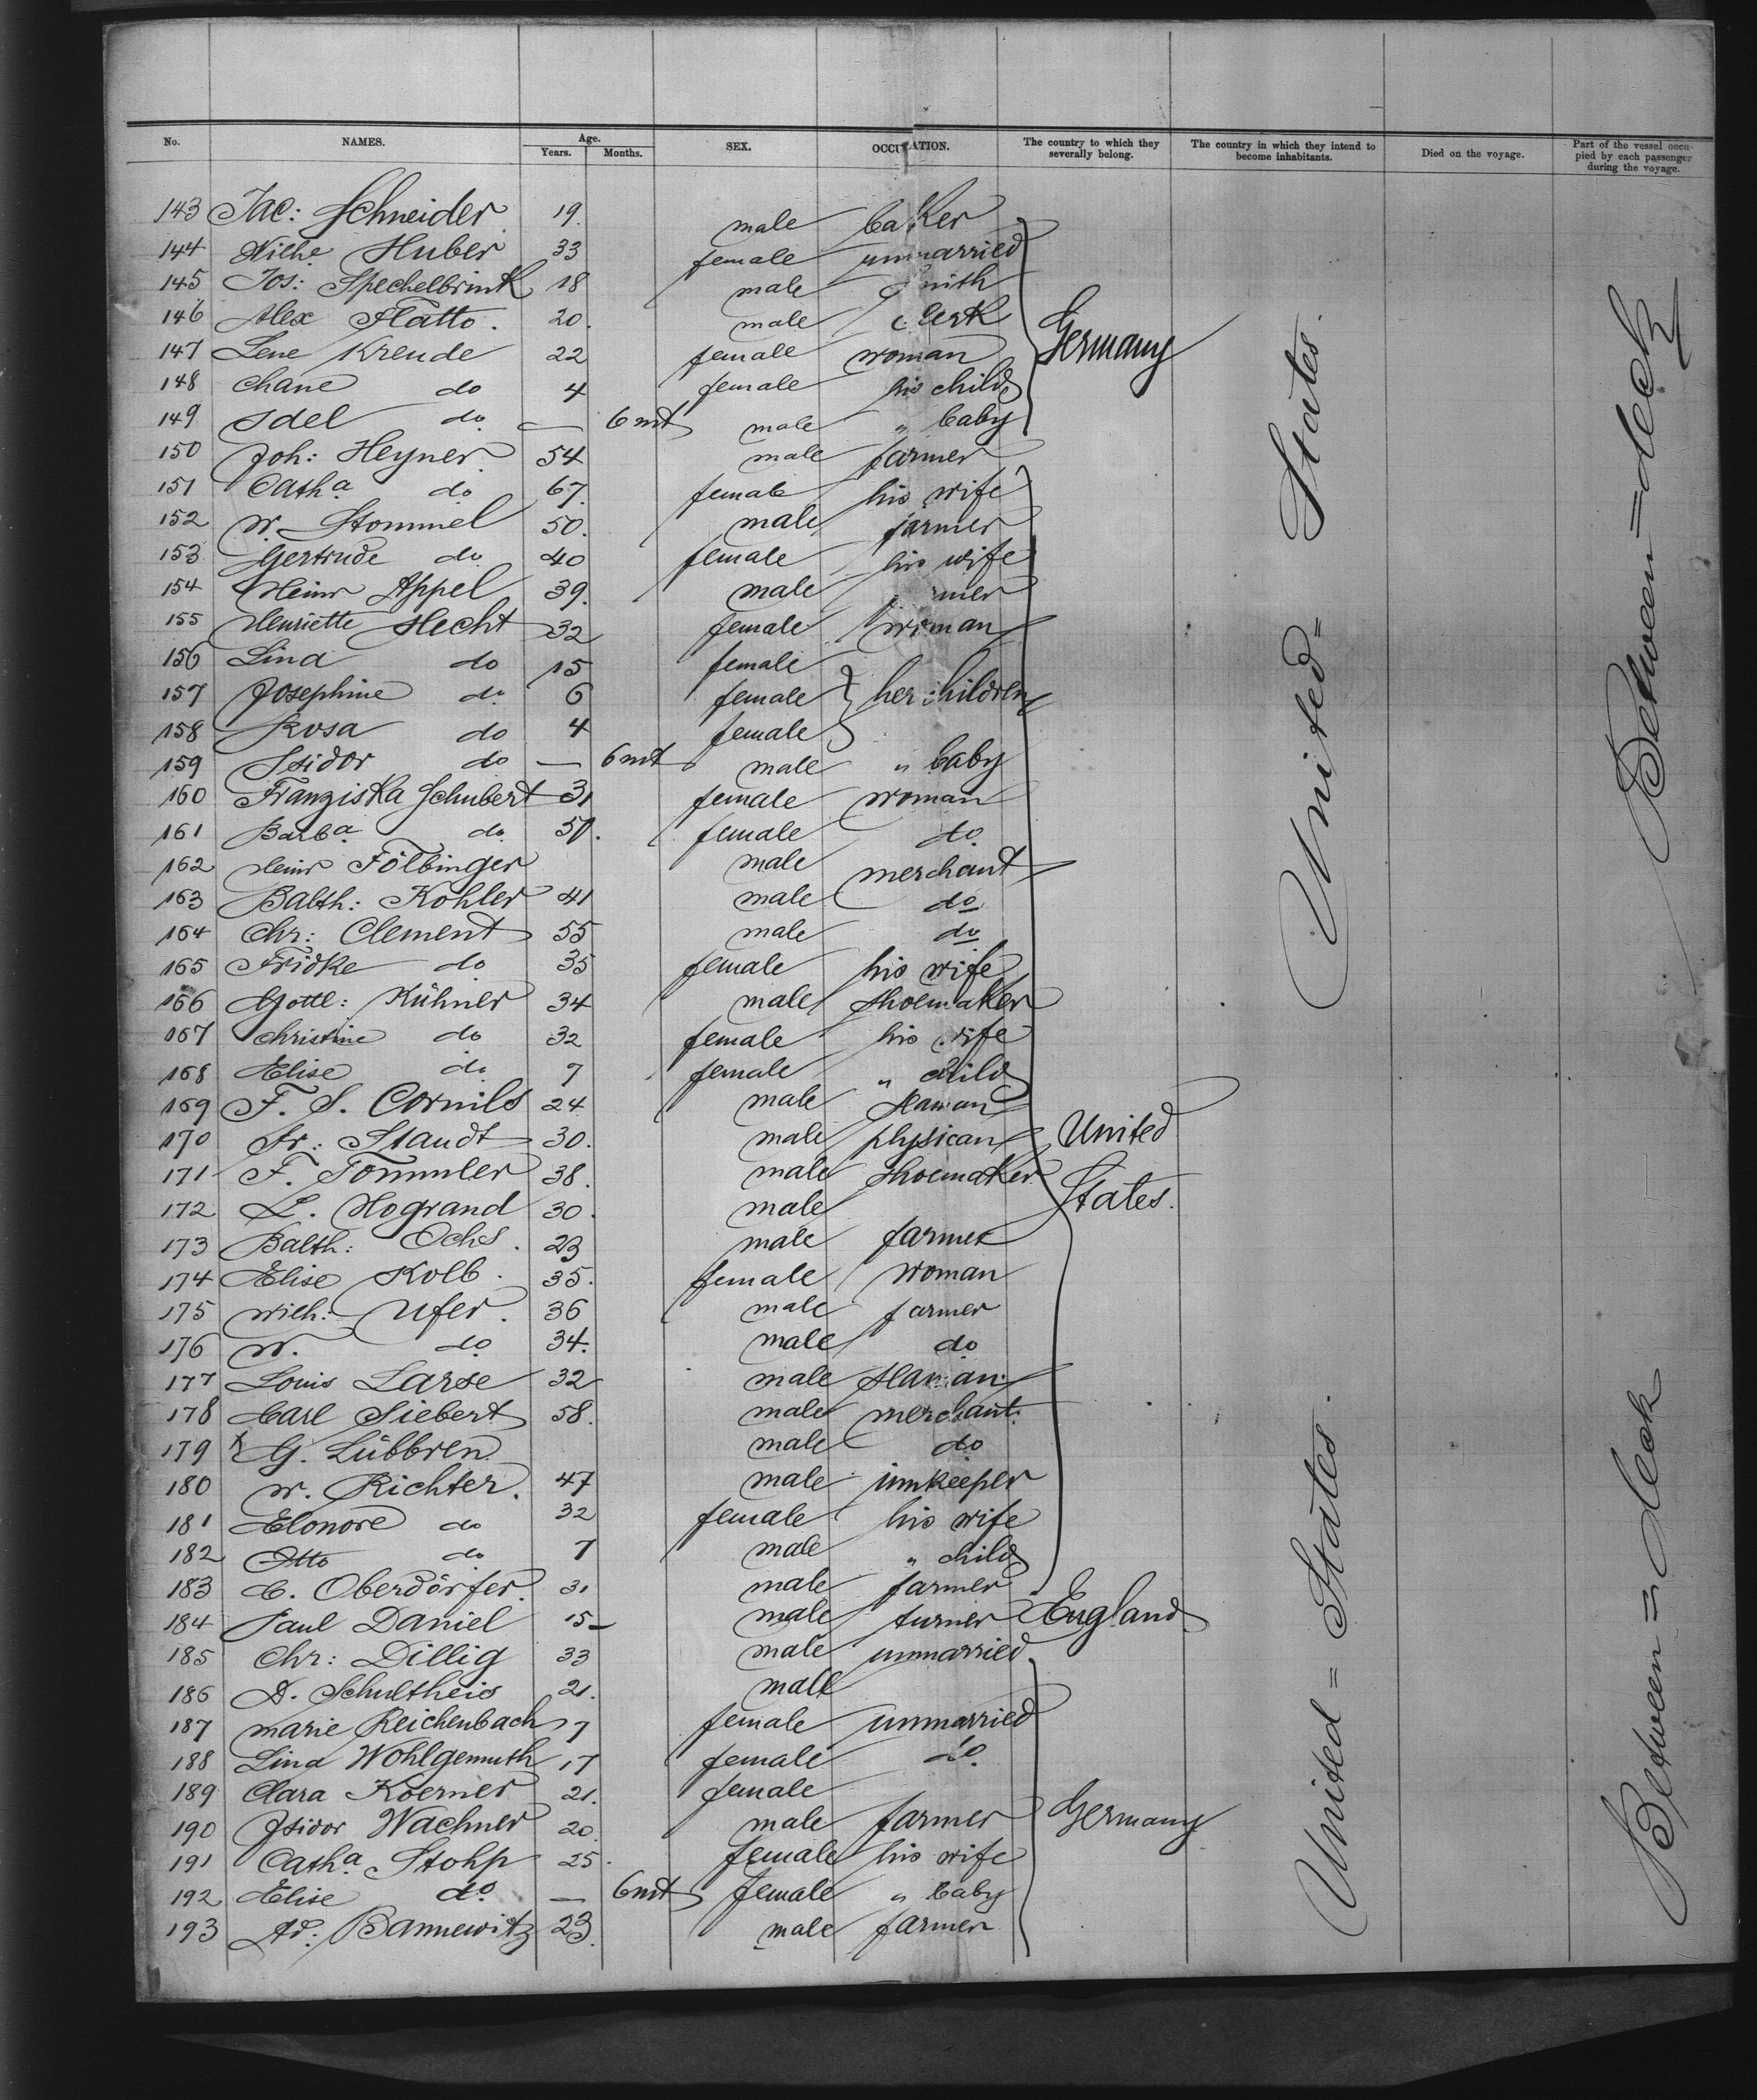 No. NAMES. Age. Years. Months. SEX. OCCUPATION. The country to which they severally belong. The country in which they intend to become inhabitants. Died on the voyage. Part of the vessel occupied by each passenger during the voyage.
143 Jac: Schneider 19. male baker
144 Wilhe Huber 33 female unmarried
145 Jos: Spechelbrink 18 male smith
146 Alex Flatto. 20. male clerk
147 Lene Kreude 22 female woman Germany
148 Chane do 4 female his child
149 Idel do. — 6 mt male " baby
150 Joh: Heyner 54 male farmer
151 Catha do 67. female his wife
152 W. Stommel 50. male farmer
153 Gertrude do 40 female his wife
154 Heinr Appel 39. male
155 Henriette Hecht 32 female woman
156 Lina do 15 female
157 Josephine do. 6 female her children
158 Rosa do 4 female
159 Isidor do — 6 mt male " baby
160 Franziska Schubert 31 female woman
161 Barba do 50. female do.
162 Heinr Fölbinger male merchant
163 Balth: Kohler 41 male do
164 Chr: Clement 55 male do
165 Fridke do 35 female his wife
166 Gottl: Kühner 34 male shoemaker
167 Christine do 32 female his wife
168 Elise do 7 female " child
169 F. S. Cornils 24 male
170 Fr: Staudt 30. male physican United
171 F. Tommler 38. male shoemaker
172 L. Hogrand 30. male States.
173 Balth: Ochs. 23 male farmer
174 Elise Kolb. 35. female woman
175 Wilh: Ufer. 36 male farmer
176 W. do 34. male do
177 Louis Larse 32 male
178 Carl Siebert 58. male merchant.
179 x G. Lübbren male do
180 W. Richter. 47 male innkeeper
181 Elonore do 32 female his wife
182 Otto do 7 male " child
183 C. Oberdörfer. 31 male farmer
184 Paul Daniel 15 male turner England
185 Chr: Dillig 33 male unmarried
186 D. Schultheis 21. male
187 Marie Reichenbach 7 female unmarried
188 Lina Wohlgemuth 17 female do.
189 Clara Koerner 21. female
190 Isidor Wachner 20. male farmer Germany
191 Catha Stohp 25. female his wife
192 Elise do — 6 mt female " baby
193 Ad: Bannewitz 23. male farmer
United= States.
United = States.
Between = deck
Between = deck